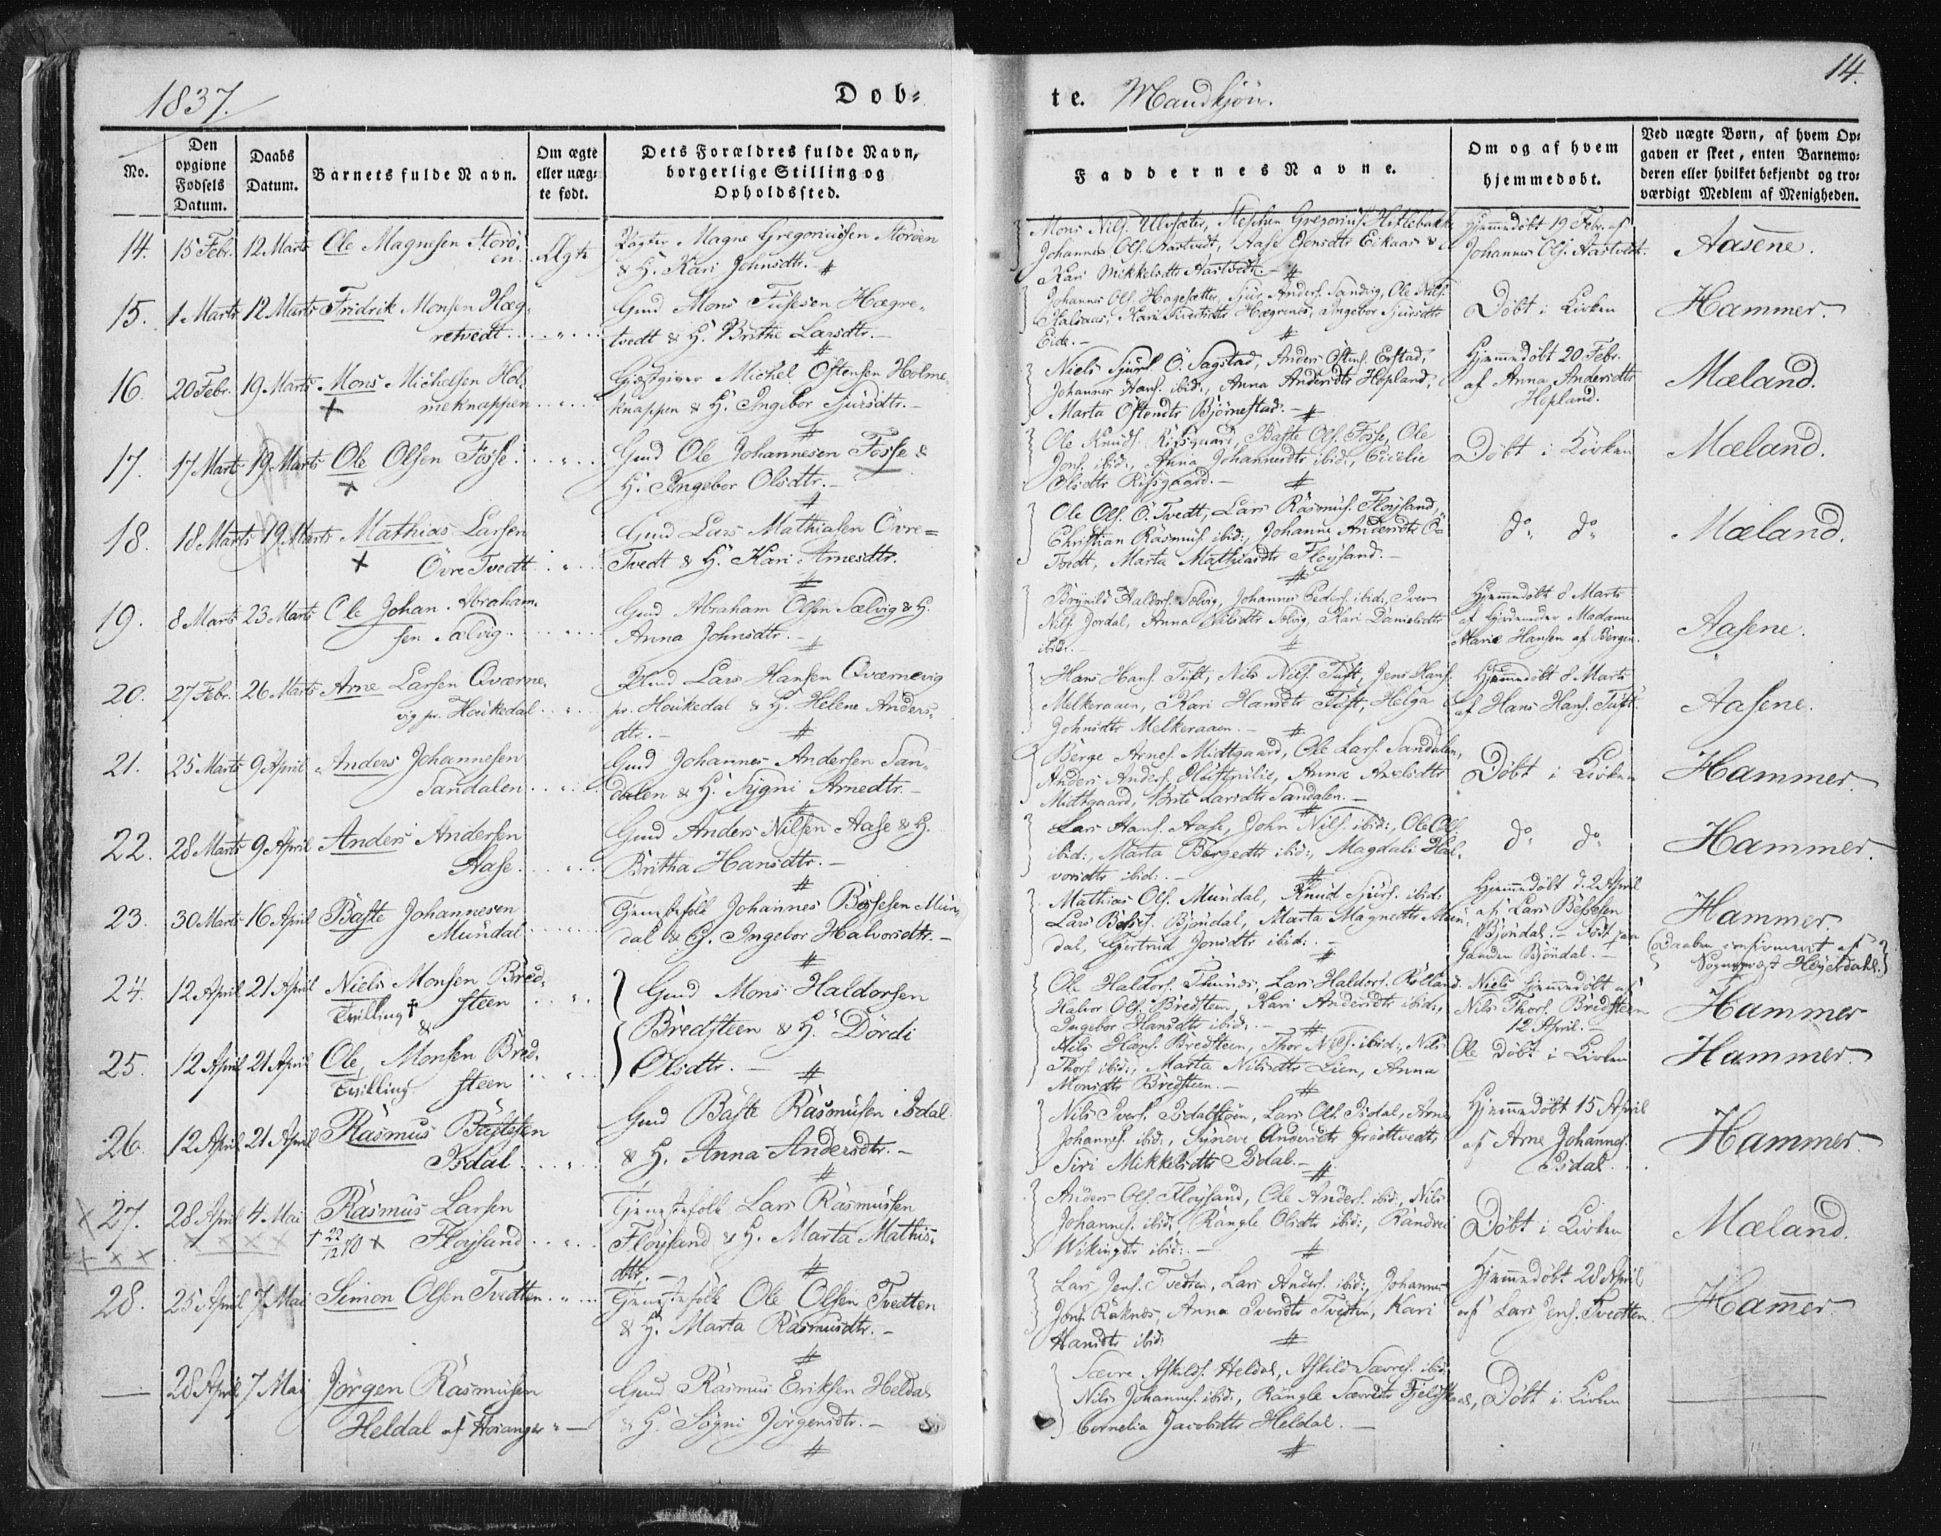 1837.
Dob-
te. Mandkjön.
14.
No.
Den opgivne Fødsels Datum.
Daabs Datum.
Barnets fulde Navn.
Om ægte eller uægte født.
Dets Forældres fulde Navn, borgerlige Stilling og Opholdssted.
Faddernes Navne.
Om og af hvem hjemmedøbt.
Ved uægte Børn, af hvem Opgaven er skeet, enten Barnemoderen eller hvilket bekjendt og troværdigt Medlem af Menigheden.
14. 15 Febr. 12 Marts Ole Magnesen Storöen Ægte
Magne Gregoriussen Storöen
& H. Kari Johnsdtr.
Mons Nils. Steffen Gregoriuss.
Johannes Ols. Aastvedt, Aase Eikaas &
Kari Mikkelsdtr Aastvedt.
Hjemmedöbt 19 Febr. af
Johannes Ols. Aastvedt.
Aasene.
15. 1 Marts 12 Marts Fridrik Monsen Hægretvedt
Gmd Mons Hægretvedt & H. Brithe Larsdtr.
Johannes Ols. Hagesætter, Sjur Anders. Sandvig, Ole Nils.
Ingebor Sjursdtr
Eide.
Döbt i Kirken
Hammer.
16. 20 Febr. 19 Marts Mons Michelsen Holmeknappen
Gjestgiver Michel Östensen Holmeknappen & H. Ingebor Sjursdtr.
Niels Sjurs. Ö. Sagstad, Anders Östens. Erstad,
Johannes Hans. ibid:, Anna Andersdtr Hopland,
Marta Östensdtr Björnestad.
Hjemmedöbt 20 Febr.
af Anna Andersdtr
Hopland.
Mæland.
17. 17 Marts 19 Marts Ole Olsen Fosse
Gmd Ole Johannesen Fosse &
H. Ingebor Olsdtr.
Ole Knuds. Risgaard, Baste Ols. Fosse, Ole
Jons. ibid:, Anna Johannesdtr ibid:, Cicelie
Olsdtr Risgaard.
Döbt i Kirken
Mæland.
18. 18 Marts 19 Marts Mathias Larsen
Övre Tvedt
Gmd Lars Mathiasen Övre=
Tvedt & H. Kari Arnesdtr.
Ole Ols. Ö. Tvedt, Lars Rasmus. Flöysand,
Christian Rasmus. ibid:, Johanne Andersdtr Ö=
Tvedt, Marta Mathiasdtr Flöysand.
do do
Mæland.
19. 8 Marts 23 Marts Ole Johan Abrahamsen Sælvig
Gmd Abraham Olsen Sælvig & H.
Anna Johnsdtr.
Brynild Haldors. Sælvig, Johannes Peders. ibid., Iver
Nils. Jordal, Anna Nilsdtr Sælvig, Kari Danielsdtr
ibid.
Hjemmedöbt 8 Marts
af Madame
Marie Hansen af Bergen.
Aasene.
20. 27 Febr. 26 Marts Arne Larsen Qværnevig pr. Houkedal
Lars Hansen Qværnevig
pr. Houkedal & H. Helene Andersdtr.
Hans Hans. Tuft, Nils Nils. Tuft, Jens Hans.
Melkeraaen, Kari Hansdtr Tuft, Helga
Johnsdtr Melkeraaen.
Hjemmedöbt 8 Marts
af Hans Hans. Tuft.
Aasene.
21. 25 Marts 9 April Anders Johannesen
Sandalen
Gmd Johannes Andersen Sandalen & H. Sygni Arnedtr.
Börge Arnes. Midtgaard, Ole Lars. Sandalen,
Anders Anders. Anna
Midtgaard, Brite Larsdtr Sandalen.
Döbt i Kirken
Hammer.
22. 28 Marts 9 April Anders Andersen
Aase
Gmd Anders Nilsen Aase & H.
Britha Hansdtr.
Lars Hans. Aase, John Nils. ibid:, Ole Ols.
ibid:, Marta Börgedtr ibid:, Magdali Halvorsdtr ibid:.
do do
Hammer.
23. 30 Marts 16 April Baste Johannesen
Mundal
Tjenestefolk Johannes Bessesen Mundal & H. Ingebor Halvorsdtr.
Mathias Ols. Mundal, Knud Sjurs. ibid:
Lars Besses. Bjöndal, Marta Magnedtr Mundal, Gjertrud Jonsdtr ibid:.
Hjemmedöbt d. 2 April
af Lars Bessesen
Bjöndal. födt paa
Gaarden Bjöndal.
Hammer
(Daaben confirmeret af
Sognepræst Heyerdahl.)
24. 12 April 21 April Niels Monsen Bredsteen
Tvilling †
&
Gmd Mons Haldorsen
Bredsteen & H. Dördi
Olsdtr.
Ole Haldors. Thunæs, Lars Haldors.
Halvor Ols. Bredsteen, Kari Andersdtr ibid:,
Ingebor Hansdtr ibid:.
Niels hjemmedöbt af
Nils Thors. Bredsteen
12 April.
Hammer
25. 12 April 21 April Ole Monsen Bredsteen
Tvilling
Nils Hans. Bredsteen, Thor Nils. ibid:, Nils
Thors. ibid:, Marta Nilsdtr Lien, Anna
Monsdtr Bredsteen.
Ole döbt i Kirken
Hammer
26. 12 April 21 April Rasmus Bastesen
Isdal
Gmd Baste Rasmusen Isdal
& H. Anna Andersdtr.
Nils Ivers. Isdalstöen, Lars Ols. Isdal, Arne
Johannes. ibid:, Syneve Andersdtr Gröttvedt,
Siri Mikkelsdtr Isdal.
Hjemmedöbt 15 April
af Arne Johannes.
Isdal.
Hammer.
27. 28 April 4 Mai Rasmus Larsen
Flöysand
Tjenestefolk Lars Rasmussen
Flöysand & H. Marta Mathisdtr.
Anders Ols. Flöysand, Ole Anders. ibid:, Nils
Johannes. ibid:, Rangle Olsdtr ibid:, Randvei
Wikingdtr ibid:.
Döbt i Kirken
Mæland.
28. 25 April 7 Mai Simon Olsen Tvedten
Tjenestefolk Ole Olsen Tvedten
& H. Marta Rasmusdtr.
Lars Jens. Tvedten, Lars Anders. ibid:, Johannes
Jons. Raknes, Anna Iversdtr Tvedten, Kari
Hansdtr ibid:
Hjemmedöbt 28 April
af Lars Jens. Tvedten.
Hammer.
— 28 April 7 Mai Jörgen Rasmusen
Heldal af Hosanger
Gmd Rasmus Eriksen Heldal
& H. Sögni Jörgensdtr.
Sævre Askilds. Heldal, Askild Sævres. ibid:
Nils Johannes. ibid:, Rangle Sævredtr
Cornelia Jacobsdtr Heldal.
Döbt i Kirken